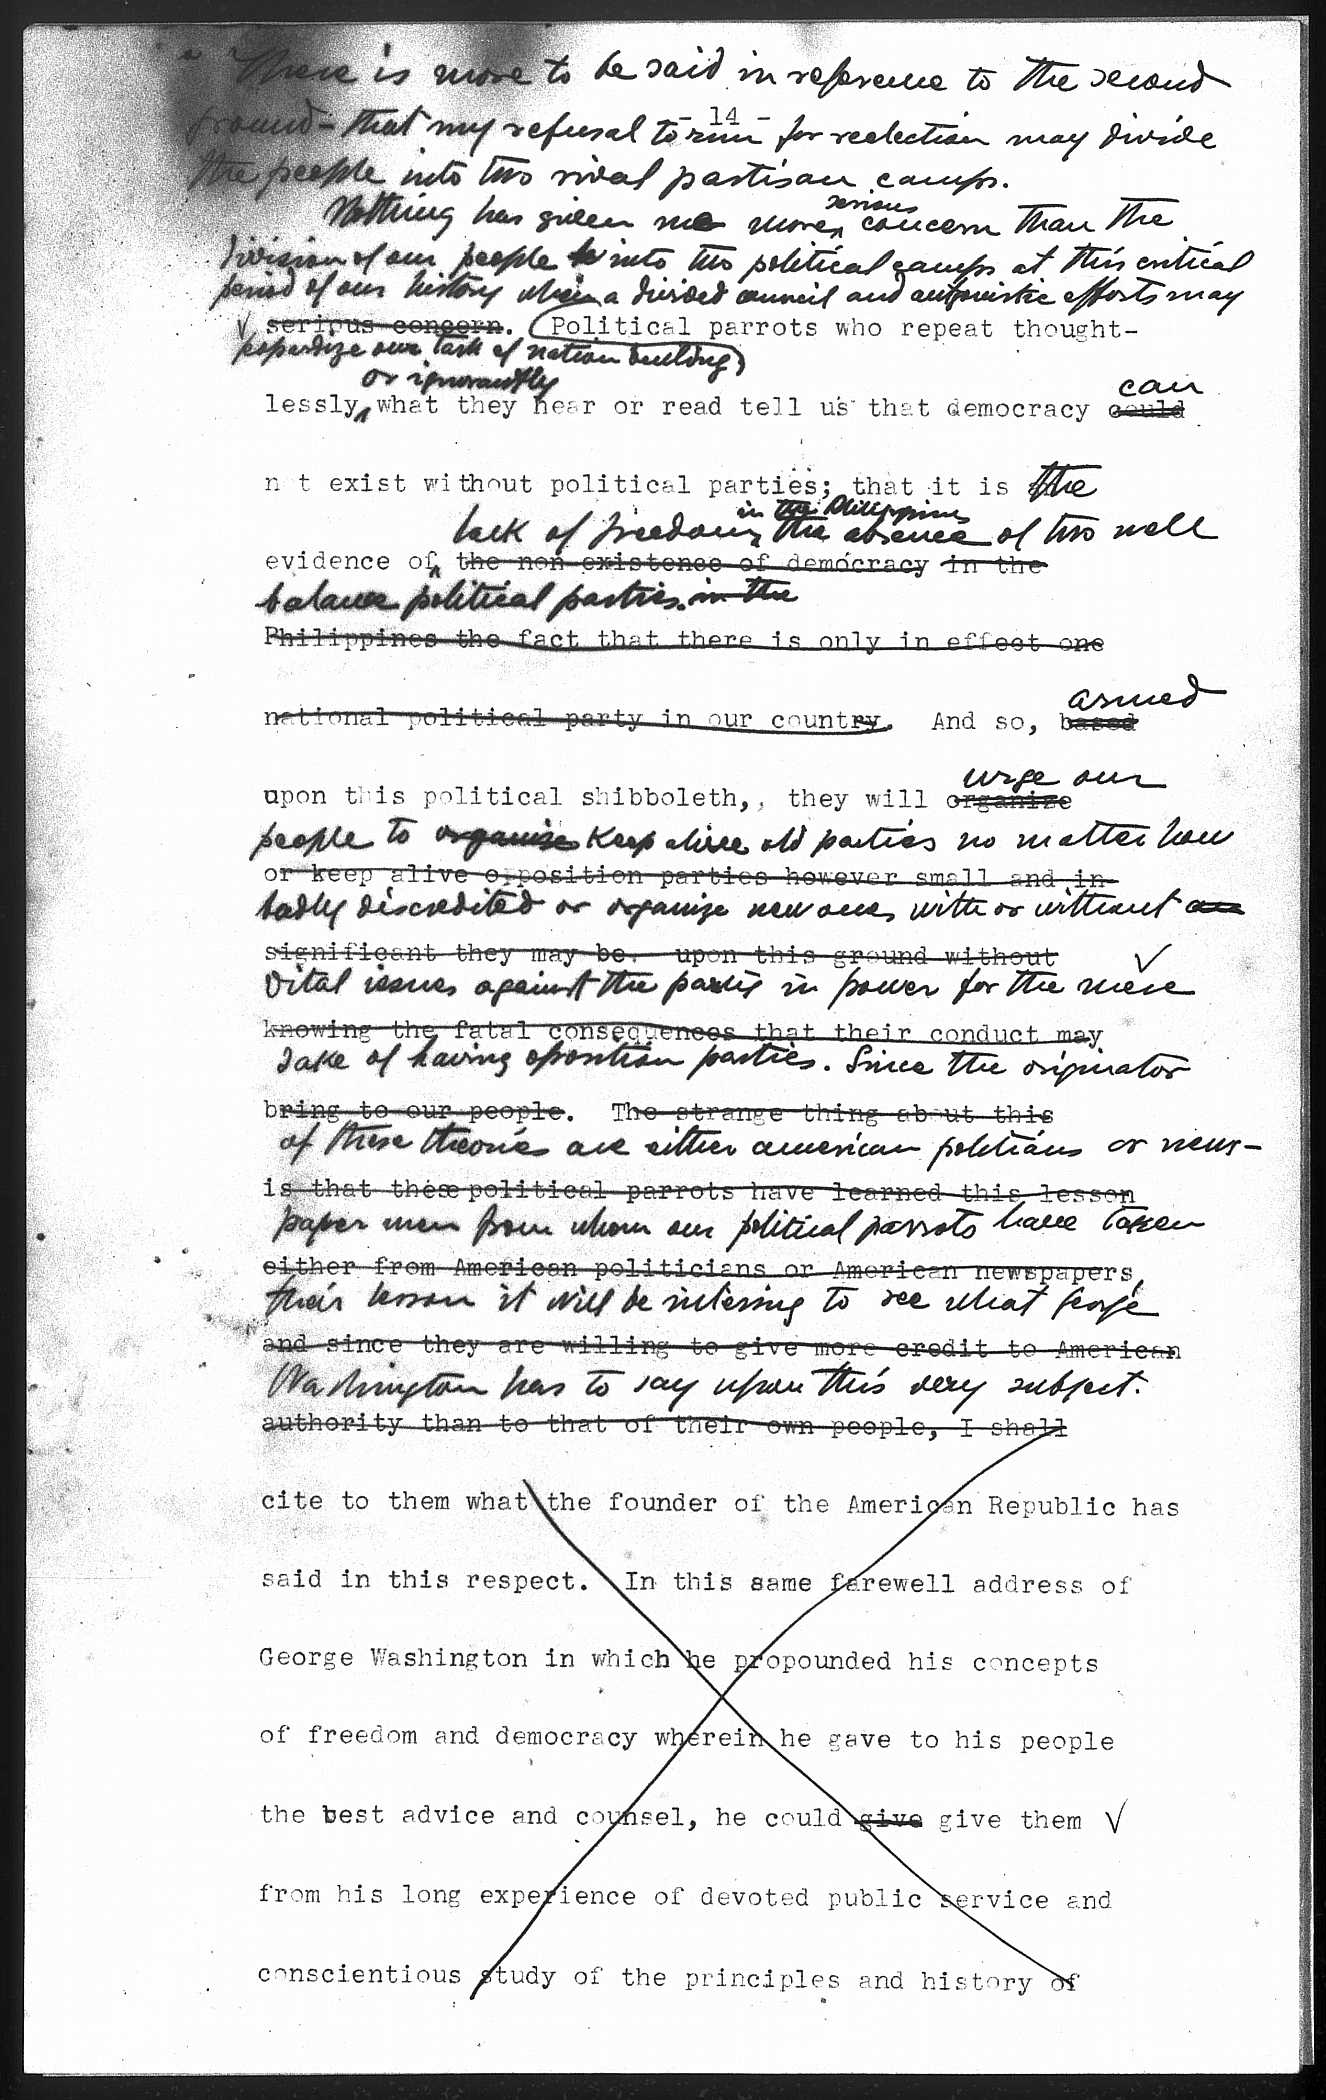 There is more to be said in reference to the second
- 14 -
ground - that my refusal to run for reelection may divide
the people into two rival partisan camps.
serious
Nothing has given me more concern than the
division of our people to into two political camps at this critical
period of our history when a divided council and antagonistic efforts may
serious concern. Political parrots who repeat thought-
jeopardize our task of nation building
or ignorantly
can
lessly what they hear or read tell us that democracy could
n t exist without political parties; that it is the
in the Philippines
lack of freedom, the absence of two well
evidence of the non existence of democracy in the
balance political parties. in the
Philippines the fact that there is only in effect one
armed
national political party in our country. And so, based
urge our
upon this political shibboleth,, they will organize
people to organize keep alive old parties no matter how
or keep alive opposition parties however small and in-
badly discredited or organize new ones, with or without
significant they may be. upon this ground without
vital issues against the party in power for the mere
knowing the fatal consequences that their conduct may
sake of having oposition parties. Since the originator
bring to our people. The strange thing about this
of these theories are either american politians or news-
is that these political parrots have learned this lesson
paper men from whom our political parrots have taken
either from American politicians or American newspapers,
their lesson it will be intersing to see what George
and since they are willing to give more credit to American
Washington has to say upon this very subject.
authority than to that of their own people, I shall
cite to them what the founder of the American Republic has
said in this respect. In this same farewell address of
George Washington in which he propounded his concepts
of freedom and democracy wherein he gave to his people
the best advice and counsel, he could give give them
from his long experience of devoted public service and
conscientious study of the principles and history of